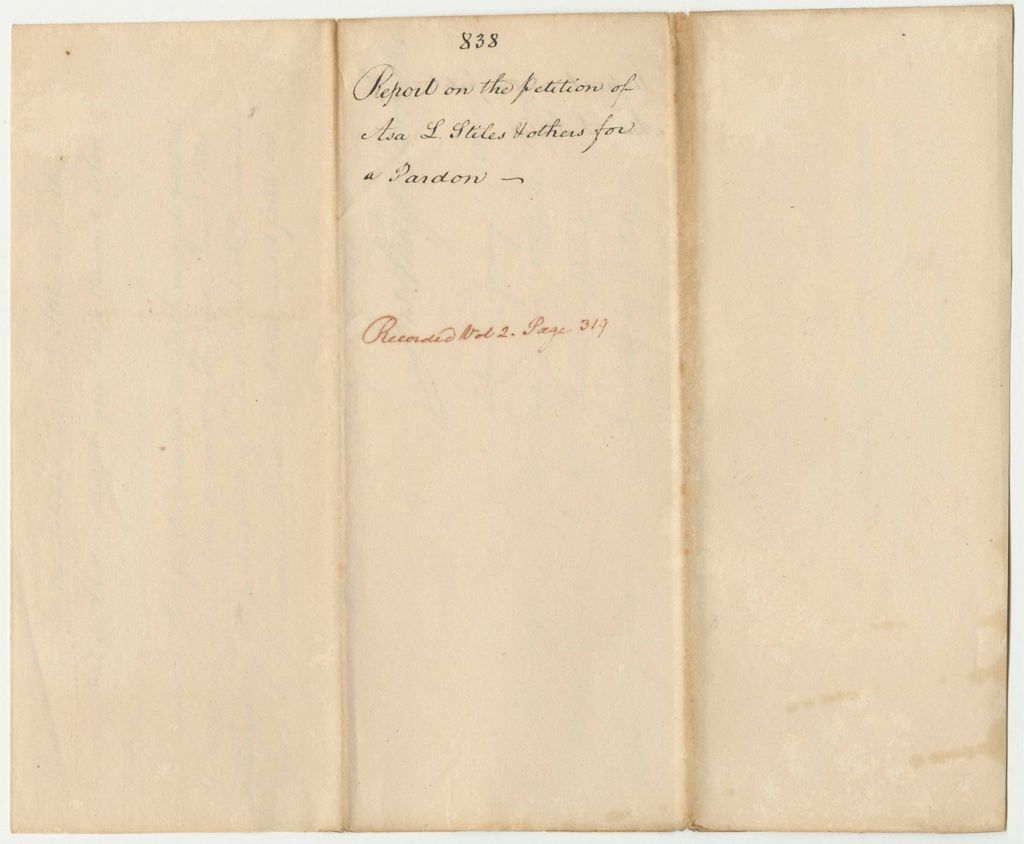 838
Report on the petition of
Asa L. Stiles & others for
a Pardon —
Recorded Vol 2. Page 319